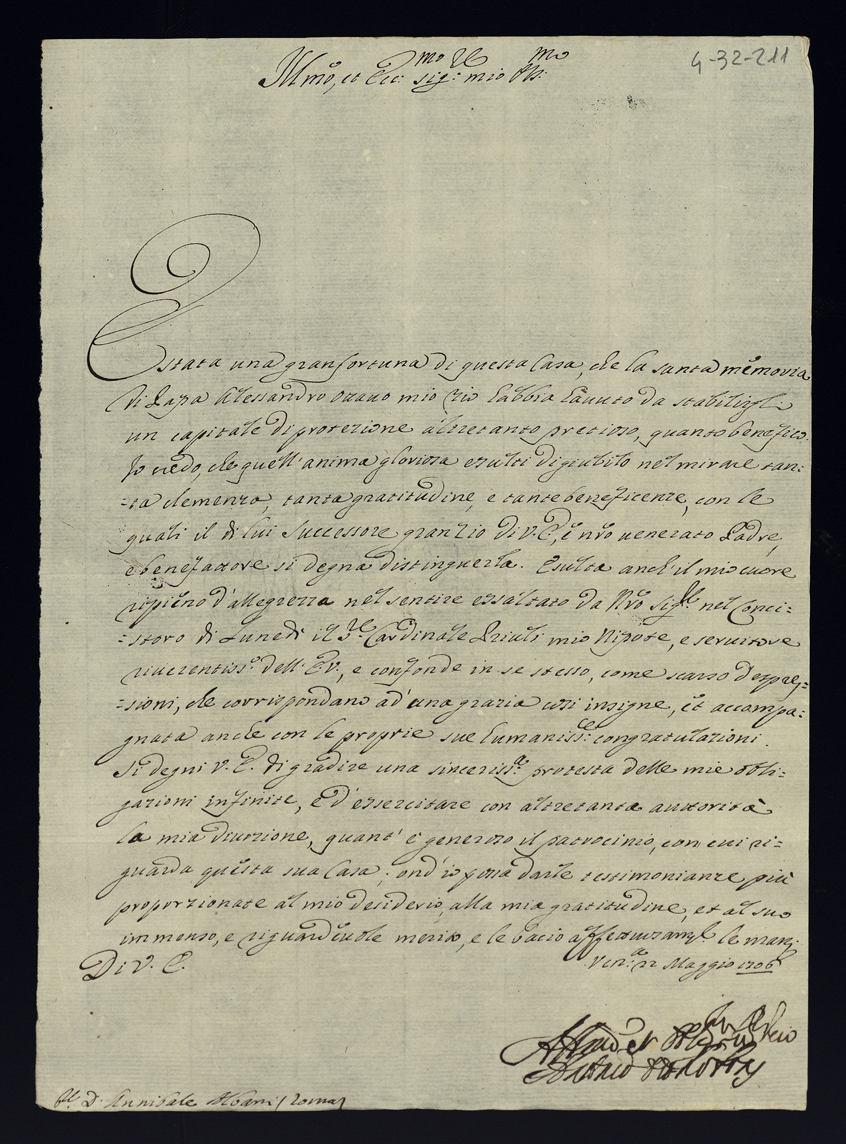 4-32-211
Ill.mo, et Ecc.mo Sig.r mio
È stata una gran fortuna di questa Casa, che la santa memoria
di Papa Alessandro ottavo mio zio habbia havuto da stabilirgli
un capitale di protezione altretanto pretioso, quanto benefico.
Io credo, che quell'anima gloriosa esulti di giubilo nel mirare tan:
:ta clemenza, tanta gratitudine, e tante beneficenze, con le
quali il di lui successore gran zio di V.E., è n̄ro venerato Padre,
e benefattore si degna distinguerla. Esulta anch'il mio cuore
ripieno d'allegrezza nel sentire essaltato da N̄ro Sig.re nel Conci:
:storo di Lunedì il S.r Cardinale Priuli mio Nipote, e servitore
riverentiss.o dell'E.V., e confonde in se stesso, come scarso d'espres:
:sioni, che corrispondano ad'una grazia così insigne, et accompa:
gnata anche con le proprie sue humaniss.e congratulazioni.
Si degni V.E. di gradire una sinceriss.a protesta delle mie obli:
gazioni infinite, e d'essercitare con altretanta auttorità
la mia divozione, quant'è generoso il patrocinio, con cui ri:
guarda questa sua Casa; ond'io possa darle testimonianze più
proporzionate al mio desiderio, alla mia gratitudine, et al suo
immenso, e riguardevole merito, e le bacio affettuosam.te le mani.
Di V.E.
Ven.a 22 Maggio 1706
D. Annibale Albani / Roma /